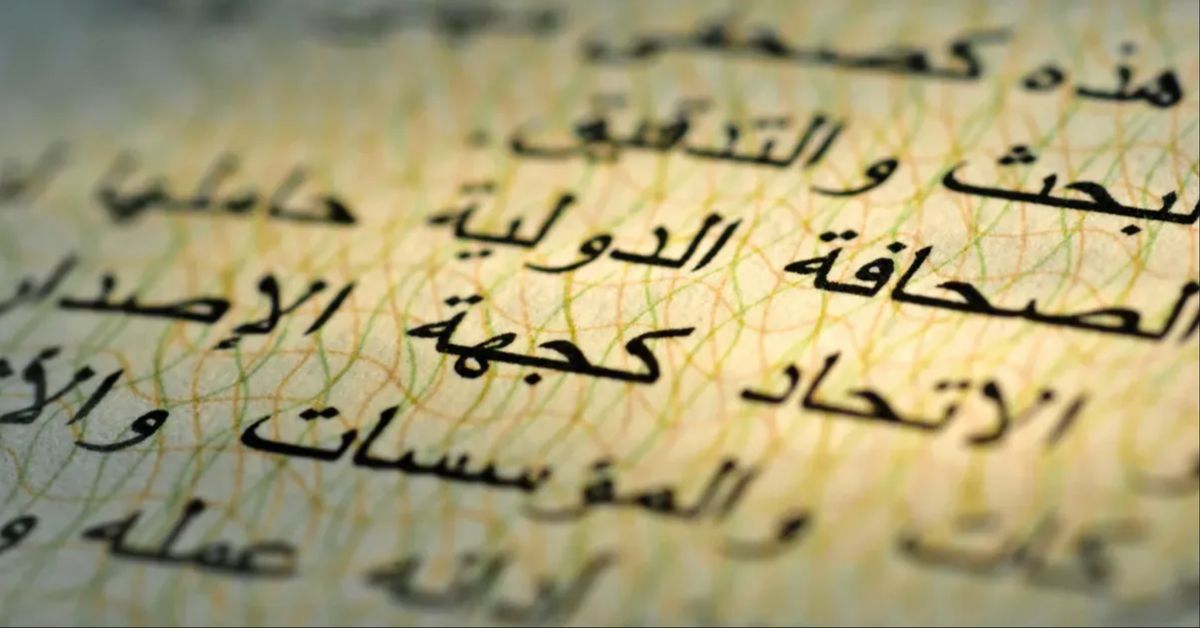 هذه كصحفي
لبحث و التدقيق.
الصحافة الدولية حاملها
الاتحاد كجهة الإصدار
و المؤسسات والأ
عمله و